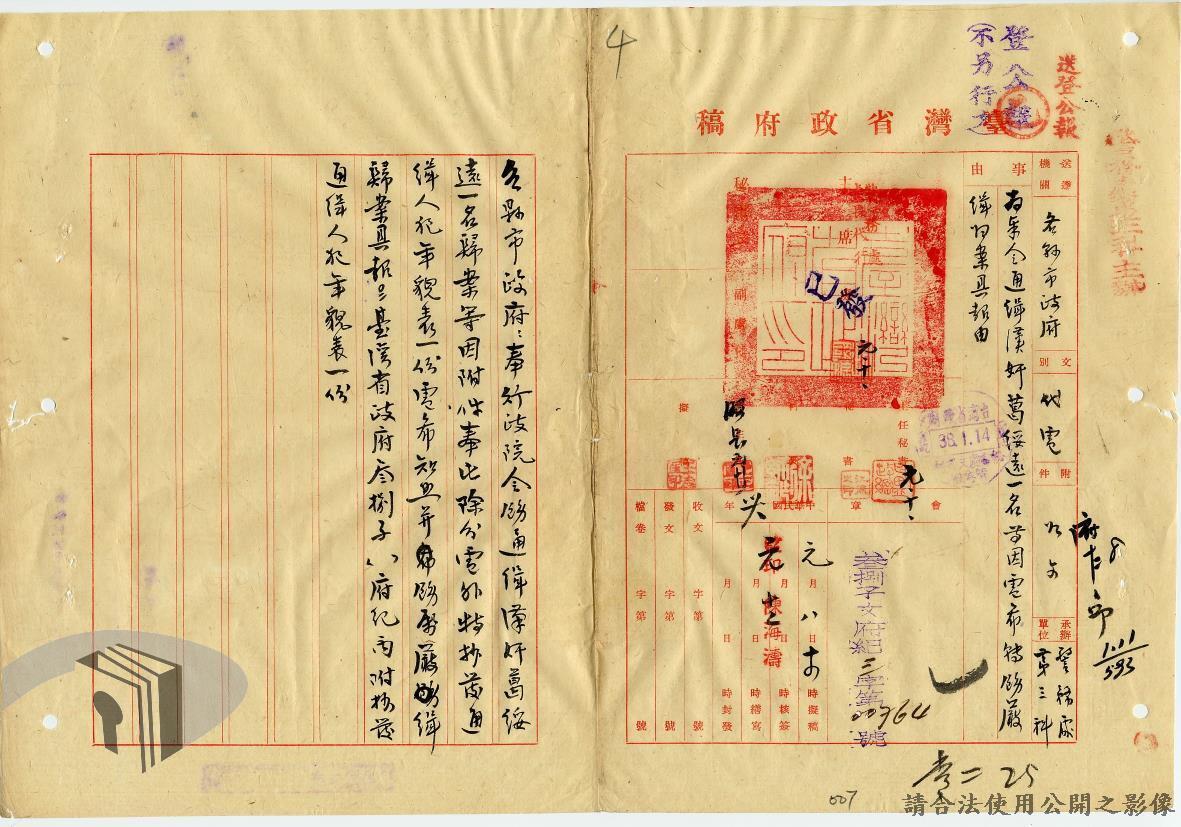 4
登公報
(不另行文)
送登公報
臺灣省政府稿
送達機關
各縣市政府
文別
代電
附件
如文
承辦單位
警務處
第三科
事由
為奉令通緝漢奸葛綏遠一名等因電希轉飭嚴
緝歸案具報由
主席
秘書
已發
元十、
元十、
38.1.14
會章
中華民國
年
元月八日
時擬稿
月日時核簽
月日時繕寫
月日時封發
收文 字第 號
發文 字第 號
檔卷 字第 號
叁捌子文府紀三字第00764號
1.11
593
各縣市政府:奉行政院令飭通緝漢奸葛綏
遠一名歸案等因附件奉此除分電外特抄發通
緝人犯年貌表一份電希知照并轉飭所屬嚴緝
歸案具報為要臺灣省政府叁捌子 府紀丙附抄發
通緝人犯年貌表一份
007
請合法使用公開之影像